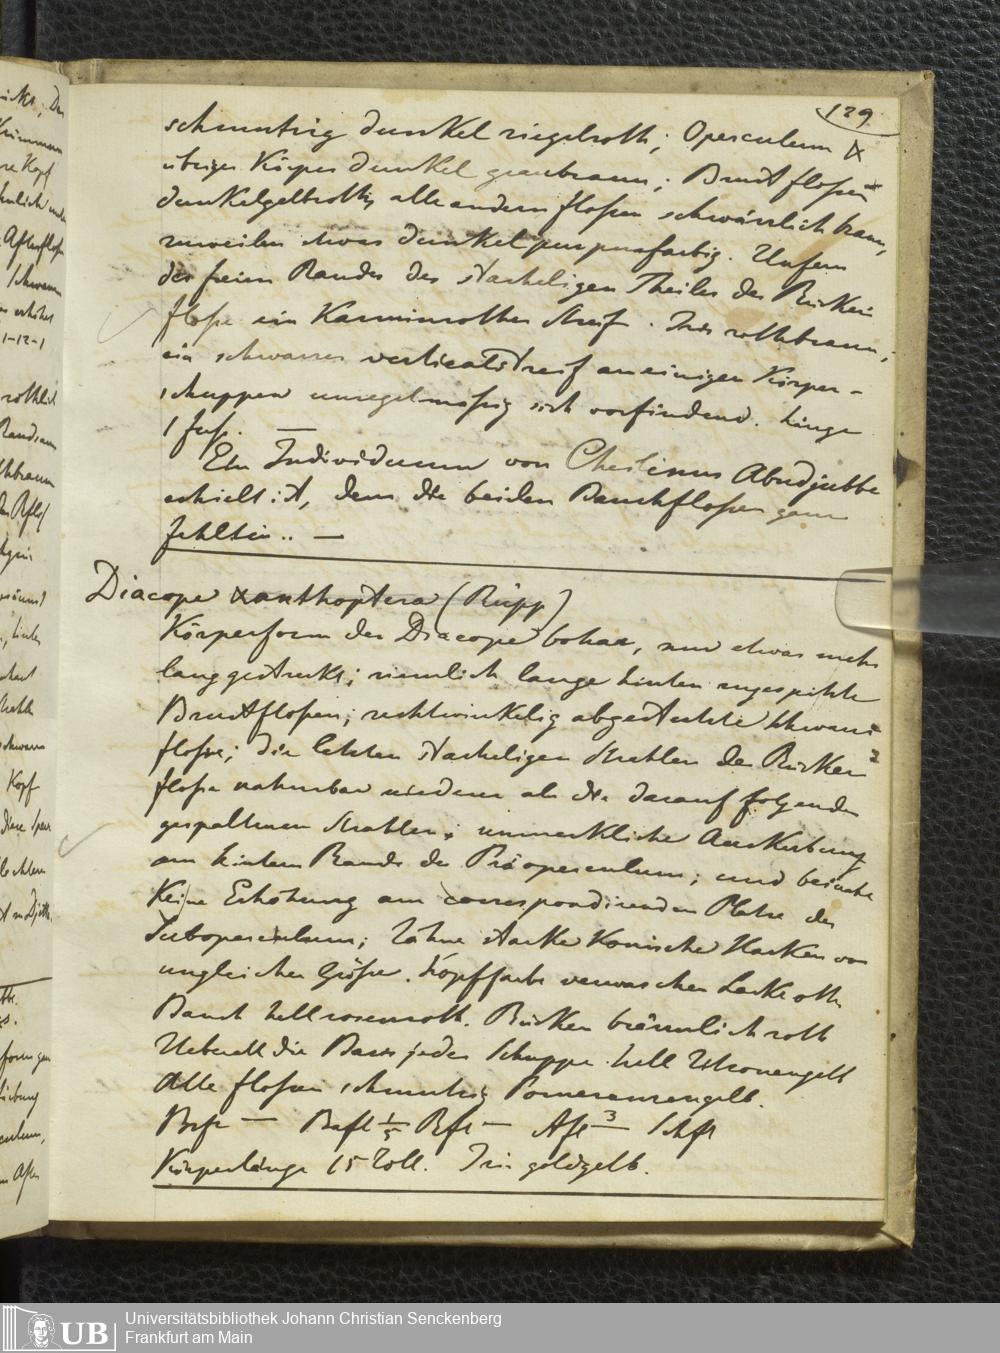 129
schmutzig dunkel ziegelroth; Operculum &
übriger Körper dunkel graubraun; Brustfloßen
dunkelgelbroth, alle andern floßen schwärzlichbraun,
zuweilen etwas dunkelpurpurfarbig. Unfern
des freien Randes des stacheligen Theiles der Rücken
floße ein Karminrother Streif. Iris rothbraun;
ein schwarzer verticalstreif an einigen Körper-
schuppen unregelmäßig sich vorfindend. Länge
1 fuß. —
Ein Individuum von Cheilinus Abudjubbe
erhielt ich, dem die beiden Bauchfloßen ganz
fehlten.. —
Diacope xanthoptera (Rüpp)
Körperform der Diacope bohar, nur etwas mehr
langgestreckt; ziemlich lange hinten zugespitzte
Brustfloßen; rechtwinkelig abgestutzte Schwanz
floße; die letzten stacheligen Strahlen der Rücken
floße niederer als die darauf folgenden
gespaltenen Strahlen; unmerkliche Auskerbung
am hintern Rande des Präoperculum; und beinahe
Keine Erhöhung am correspondirenden Platze des
Suboperculum; Zähne starke Konische Hacken von
ungleicher Größe. Kopffarbe verwaschen Lackroth
Bauch hellrosenroth. Rücken bräunlichroth
Ueberall die Basis jeder Schuppe hell Zitronengelb
Alle floßen schmutzig Pomeranzengelb.
Brfl — Bafl 1/5 Rfl — Afl 3/— Schfl
Körperlänge 15 Zoll. Iris goldgelb.
UB
Universitätsbibliothek Johann Christian Senckenberg
Frankfurt am Main